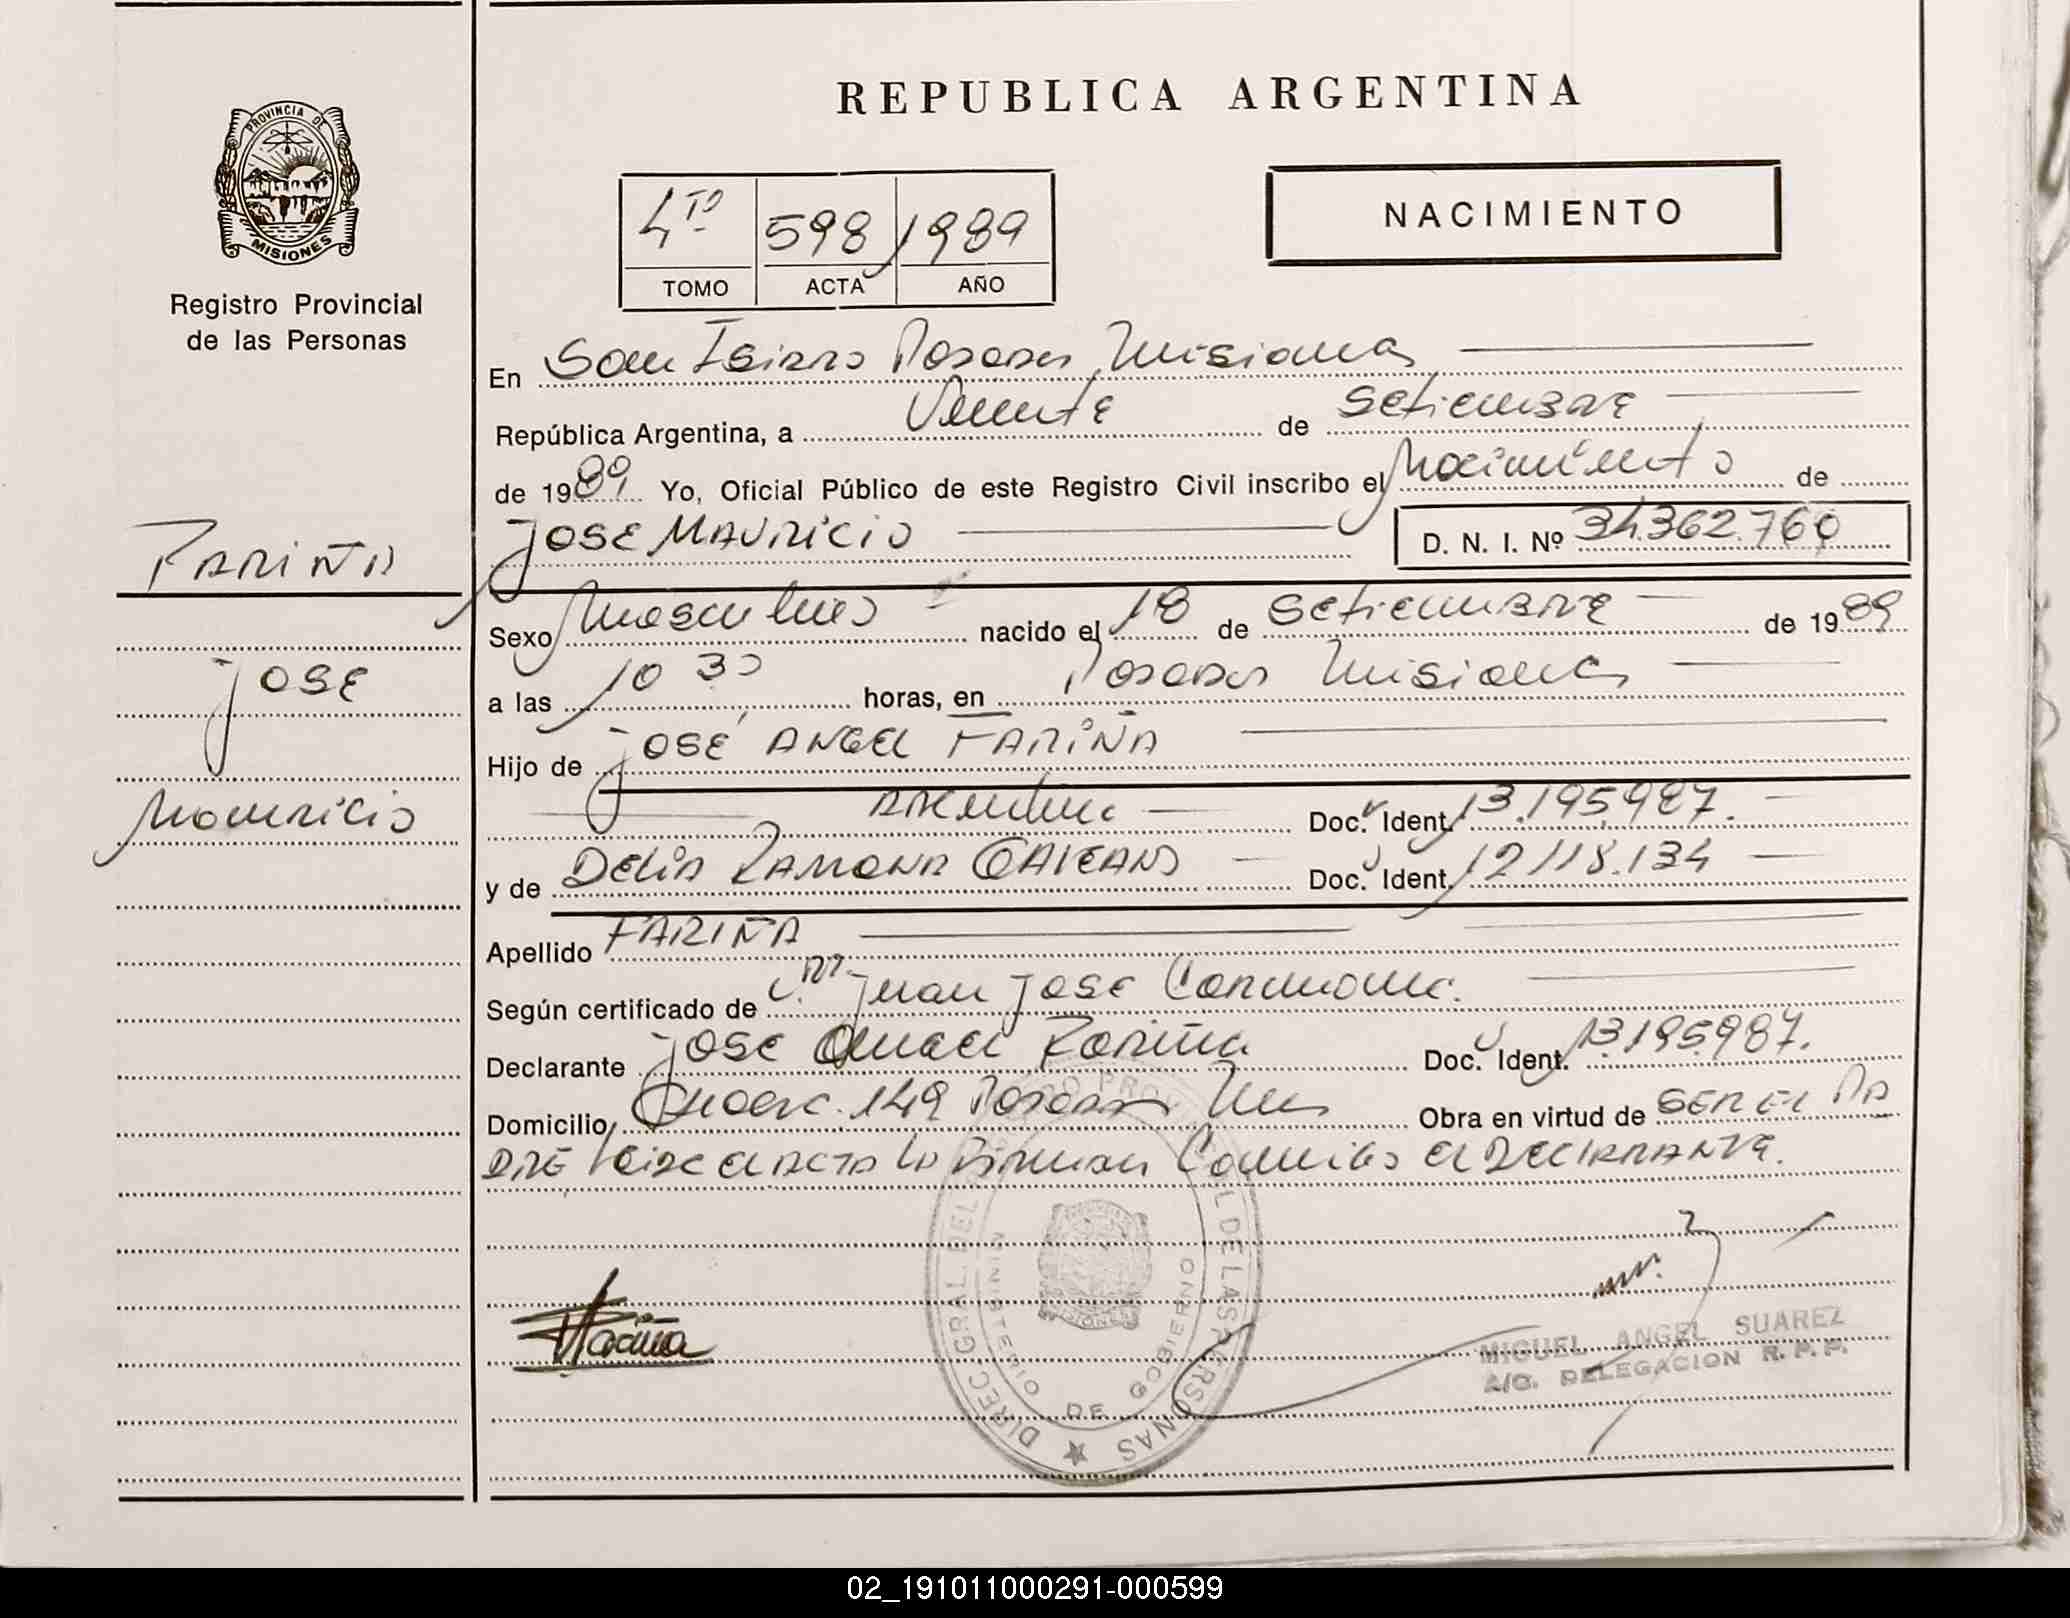 REPUBLICA ARGENTINA
PROVINCIA DE
MISIONES
Registro Provincial
de las Personas
4TO 598 1989
TOMO ACTA AÑO
NACIMIENTO
En San Isidro Posadas Misiones
República Argentina, a Veinte de Setiembre
de 1989 Yo, Oficial Público de este Registro Civil inscribo el Nacimiento de
JOSE MAURICIO D. N. I. Nº 34.362.760
FARIÑA
Sexo Masculino nacido el 18 de Setiembre de 1989
JOSE
a las 10 30 horas, en Posadas Misiones
Hijo de JOSÉ ANGEL FARIÑA
Mauricio
Argentino Doc. Ident. 13.195.987.
y de DELIA RAMONA GALEANO Doc. Ident. 12.118.134
Apellido FARIÑA
Según certificado de Juan Jose
Declarante Jose Angel Fariña Doc. Ident. 13.195.987.
Domicilio 149 Posadas Mnes Obra en virtud de SER EL PA
DRE Leida el ACTA la Firman Conmigo el DECLARANTE.
DIREC. GRAL. DEL REGISTRO PROVINCIAL DE LAS PERSONAS
MINISTERIO DE GOBIERNO
MISIONES
Fariña
MIGUEL ANGEL SUAREZ
A/C. DELEGACION R. P. P.
02_191011000291-000599